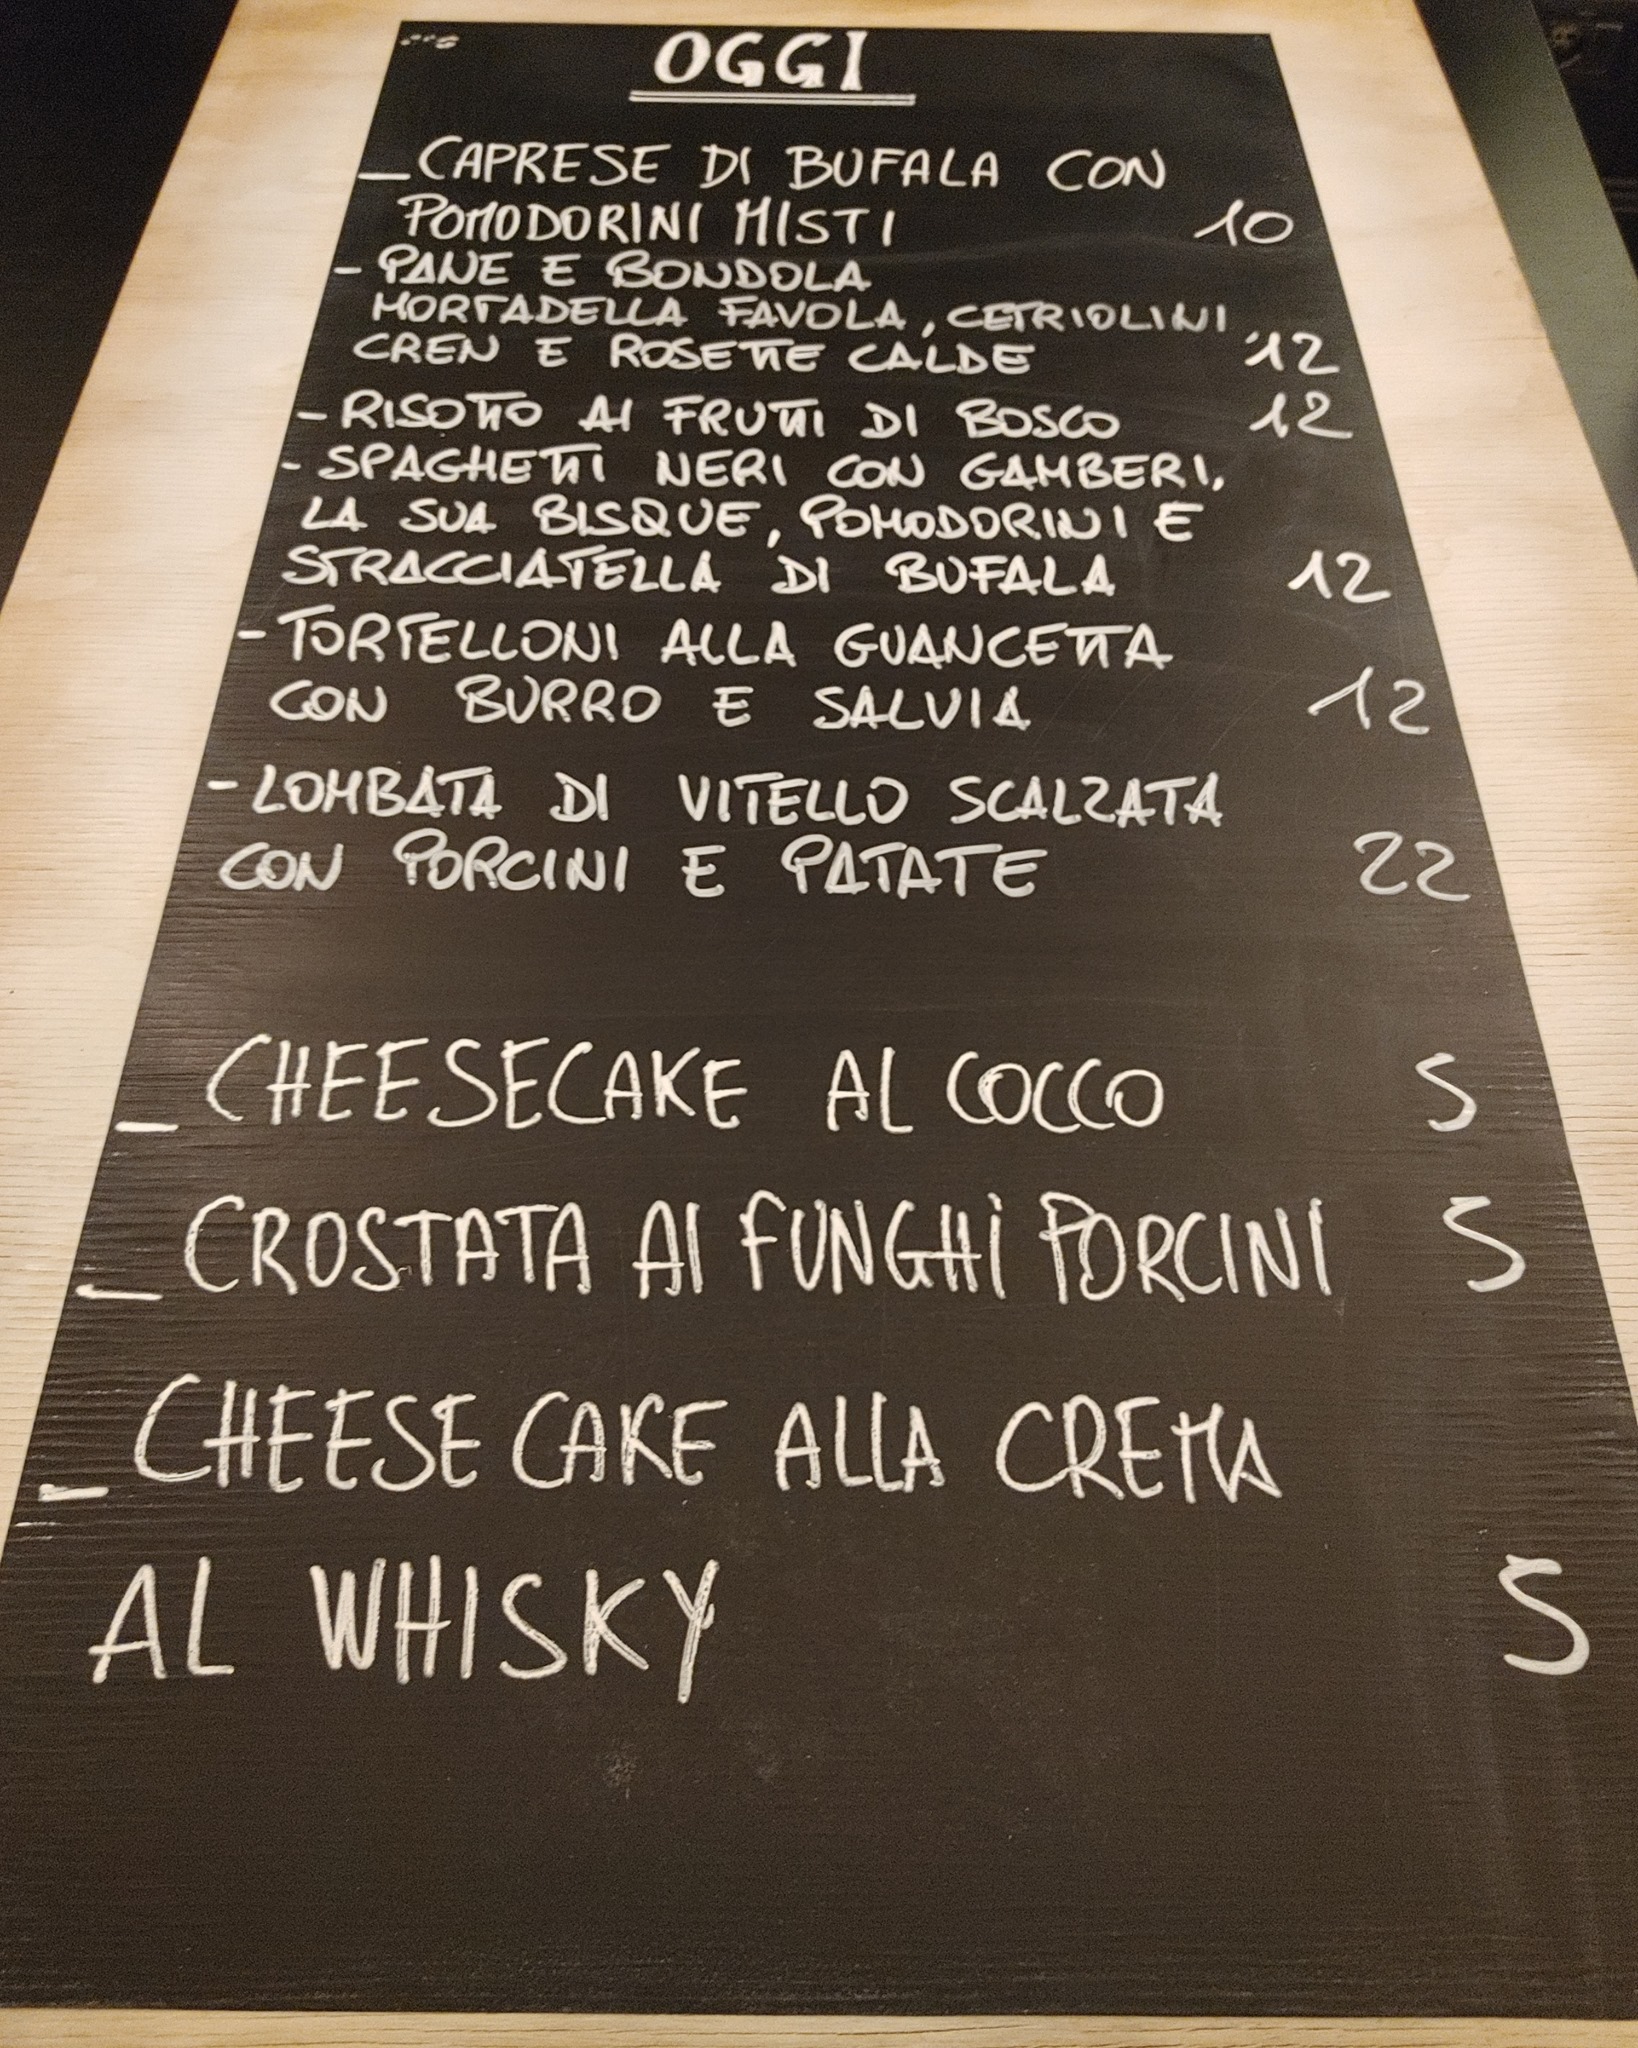 OGGI
_CAPRESE DI BUFALA CON
POMODORINI MISTI 10
- PANE E BONDOLA
MORTADELLA FAVOLA, CETRIOLINI
CREN E ROSETTE CALDE 12
- RISOTTO AI FRUTTI DI BOSCO 12
- SPAGHETTI NERI CON GAMBERI,
LA SUA BISQUE, POMODORINI E
STRACCIATELLA DI BUFALA 12
- TORTELLONI ALLA GUANCETTA
CON BURRO E SALVIA 12
- LOMBATA DI VITELLO SCALZATA
CON PORCINI E PATATE 22
_ CHEESECAKE AL COCCO 5
_ CROSTATA AI FUNGHI PORCINI 5
_ CHEESE CAKE ALLA CREMA
AL WHISKY 5